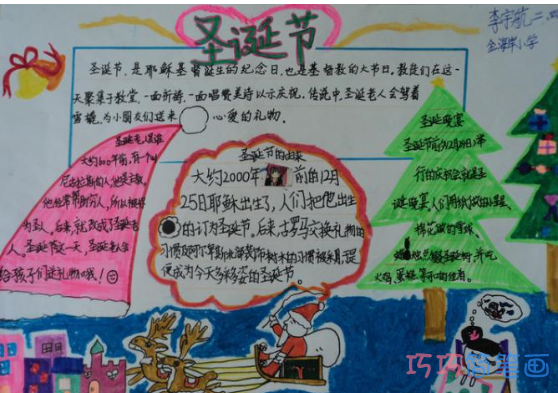 圣诞节
李宇航 二
金海岸小学
圣诞节,是耶稣基督诞生的纪念日,也是基督教的大节日,教徒们在这一
天聚集于教堂,一面祈祷,一面唱赞美诗以示庆祝,传说中,圣诞老人会驾着
雪橇,为小朋友们送来 心爱的礼物。
圣诞老人是谁
大约1600年前,有个叫
尼古拉斯的人,他是主教,
他非常帮助穷人,所以被称
为圣人,后来,就改成了圣诞老
人,圣诞节这一天,圣诞老人会
给孩子们送礼物哦!
圣诞节的由来
大约2000年 前的12月
25日耶稣出生了,人们把他出生
的 订为圣诞节,后来,古罗马交换礼物的
习惯及 装饰树木的习惯被采用,
便成为今天多彩多姿的圣诞节。
圣诞晚宴
圣诞节前夕12月24日举
行的庆祝会就是圣
诞晚宴,人们用
棉花做的雪球
圣诞树,并吃
火鸡,蛋糕等
巧巧简笔画